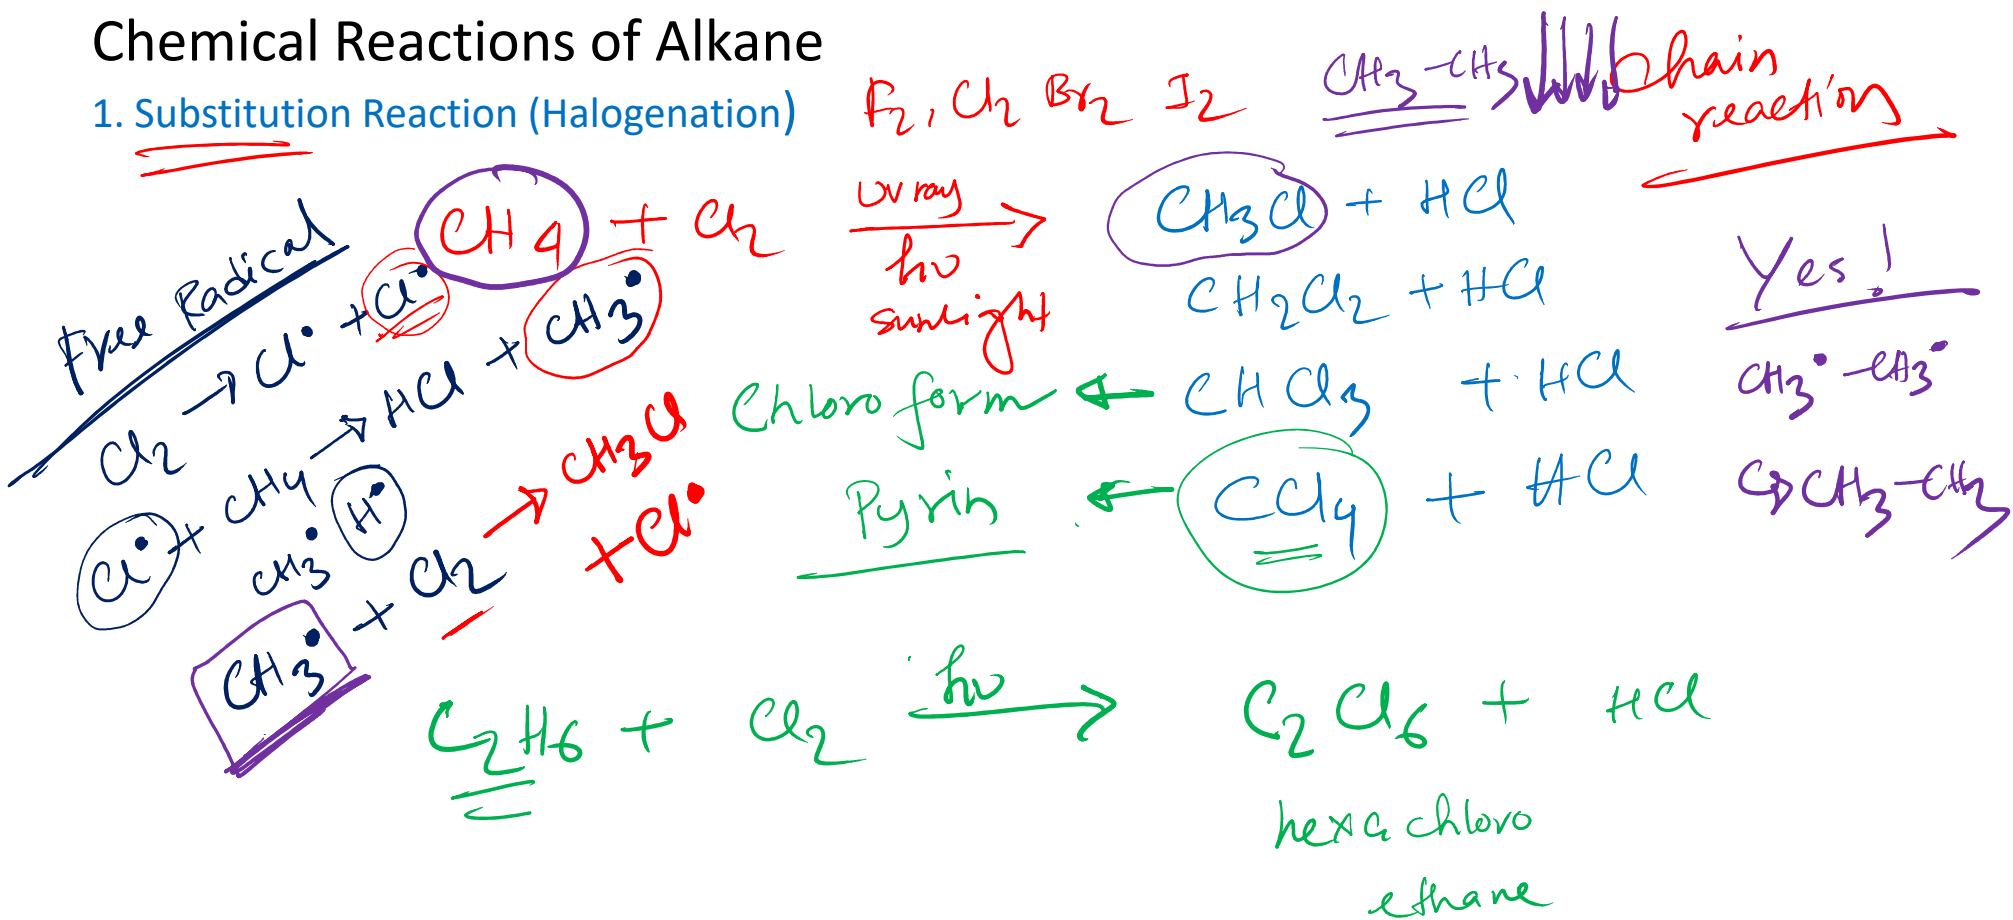 Chemical Reactions of Alkane
1. Substitution Reaction (Halogenation)
F2, Cl2 Br2 I2
CH3-CH3
Chain
reaction
CH4 + Cl2
uv ray
hυ
sunlight
CH3Cl + HCl
CH2Cl2 + HCl
Chloroform ← CHCl3 + HCl
Pyrin ← CCl4 + HCl
Free Radical
Cl2 → Cl• + Cl•
Cl• + CH4 → HCl + CH3•
CH3• H•
CH3• + Cl2 → CH3Cl
+ Cl•
Yes!
CH3• -CH3•
CH3-CH3
C2H6 + Cl2 hυ → C2Cl6 + HCl
hexachloro
ethane